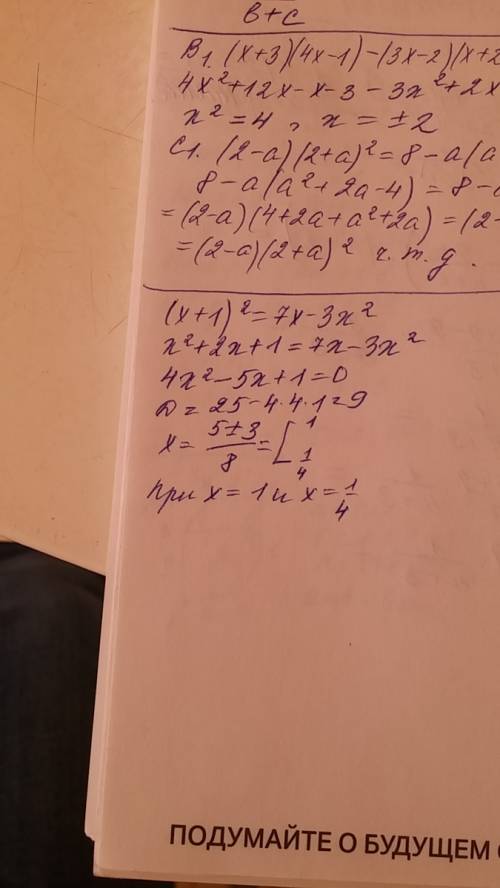 в+с
В1. (x+3)(4x-1)-(3x-2)(x+2
4x²+12x-x-3-3x²+2x
x²=4, x=±2
С1. (2-a)(2+a)²=8-a(a
8-a(a²+2a-4)=8-
=(2-a)(4+2a+a²+2a)=(2-
=(2-a)(2+a)² ч.т.д.
(x+1)²=7x-3x²
x²+2x+1=7x-3x²
4x²-5x+1=0
D=25-4·4·1=9
x=(5±3)/8=[1 1/4
при x=1 и x=1/4
ПОДУМАЙТЕ О БУДУЩЕМ